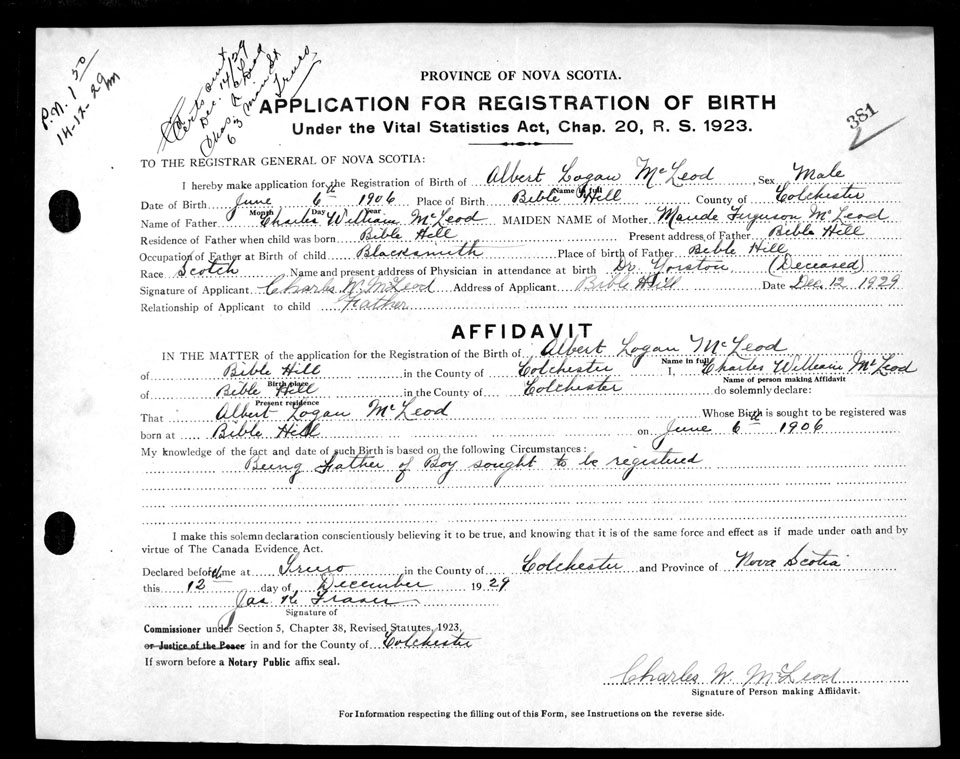 P.N. 1 50
14-12-29
Cert sent
Dec. 14/29
Chas
6
Truro
381
PROVINCE OF NOVA SCOTIA.
APPLICATION FOR REGISTRATION OF BIRTH
Under the Vital Statistics Act, Chap. 20, R. S. 1923.
TO THE REGISTRAR GENERAL OF NOVA SCOTIA:
I hereby make application for the Registration of Birth of Albert Logan McLeod Sex Male
Name in full
Date of Birth June 6th 1906 Place of Birth Bible Hill County of Colchester
Month Day Year
Name of Father Charles William McLeod MAIDEN NAME of Mother Maude Ferguson McLeod
Residence of Father when child was born Bible Hill Present address of Father Bible Hill
Occupation of Father at Birth of child Blacksmith Place of birth of Father Bible Hill
Race Scotch Name and present address of Physician in attendance at birth Dr. Yorston (Deceased)
Signature of Applicant Charles W. McLeod Address of Applicant Bible Hill Date Dec. 12 1929
Relationship of Applicant to child Father
AFFIDAVIT
IN THE MATTER of the application for the Registration of the Birth of Albert Logan McLeod
Name in full
of Bible Hill in the County of Colchester I, Charles William McLeod
Birth place Name of person making Affidavit
of Bible Hill in the County of Colchester do solemnly declare:
Present residence
That Albert Logan McLeod Whose Birth is sought to be registered was
born at Bible Hill on June 6th 1906
My knowledge of the fact and date of such Birth is based on the following Circumstances:
Being Father of Boy sought to be registered
I make this solemn declaration conscientiously believing it to be true, and knowing that it is of the same force and effect as if made under oath and by
virtue of The Canada Evidence Act.
Declared before me at Truro in the County of Colchester and Province of Nova Scotia
this 12 day of December 1929
Jas K. Fraser
Signature of
Commissioner under Section 5, Chapter 38, Revised Statutes, 1923,
or Justice of the Peace in and for the County of Colchester
If sworn before a Notary Public affix seal.
Charles W. McLeod
Signature of Person making Affiidavit.
For Information respecting the filling out of this Form, see Instructions on the reverse side.